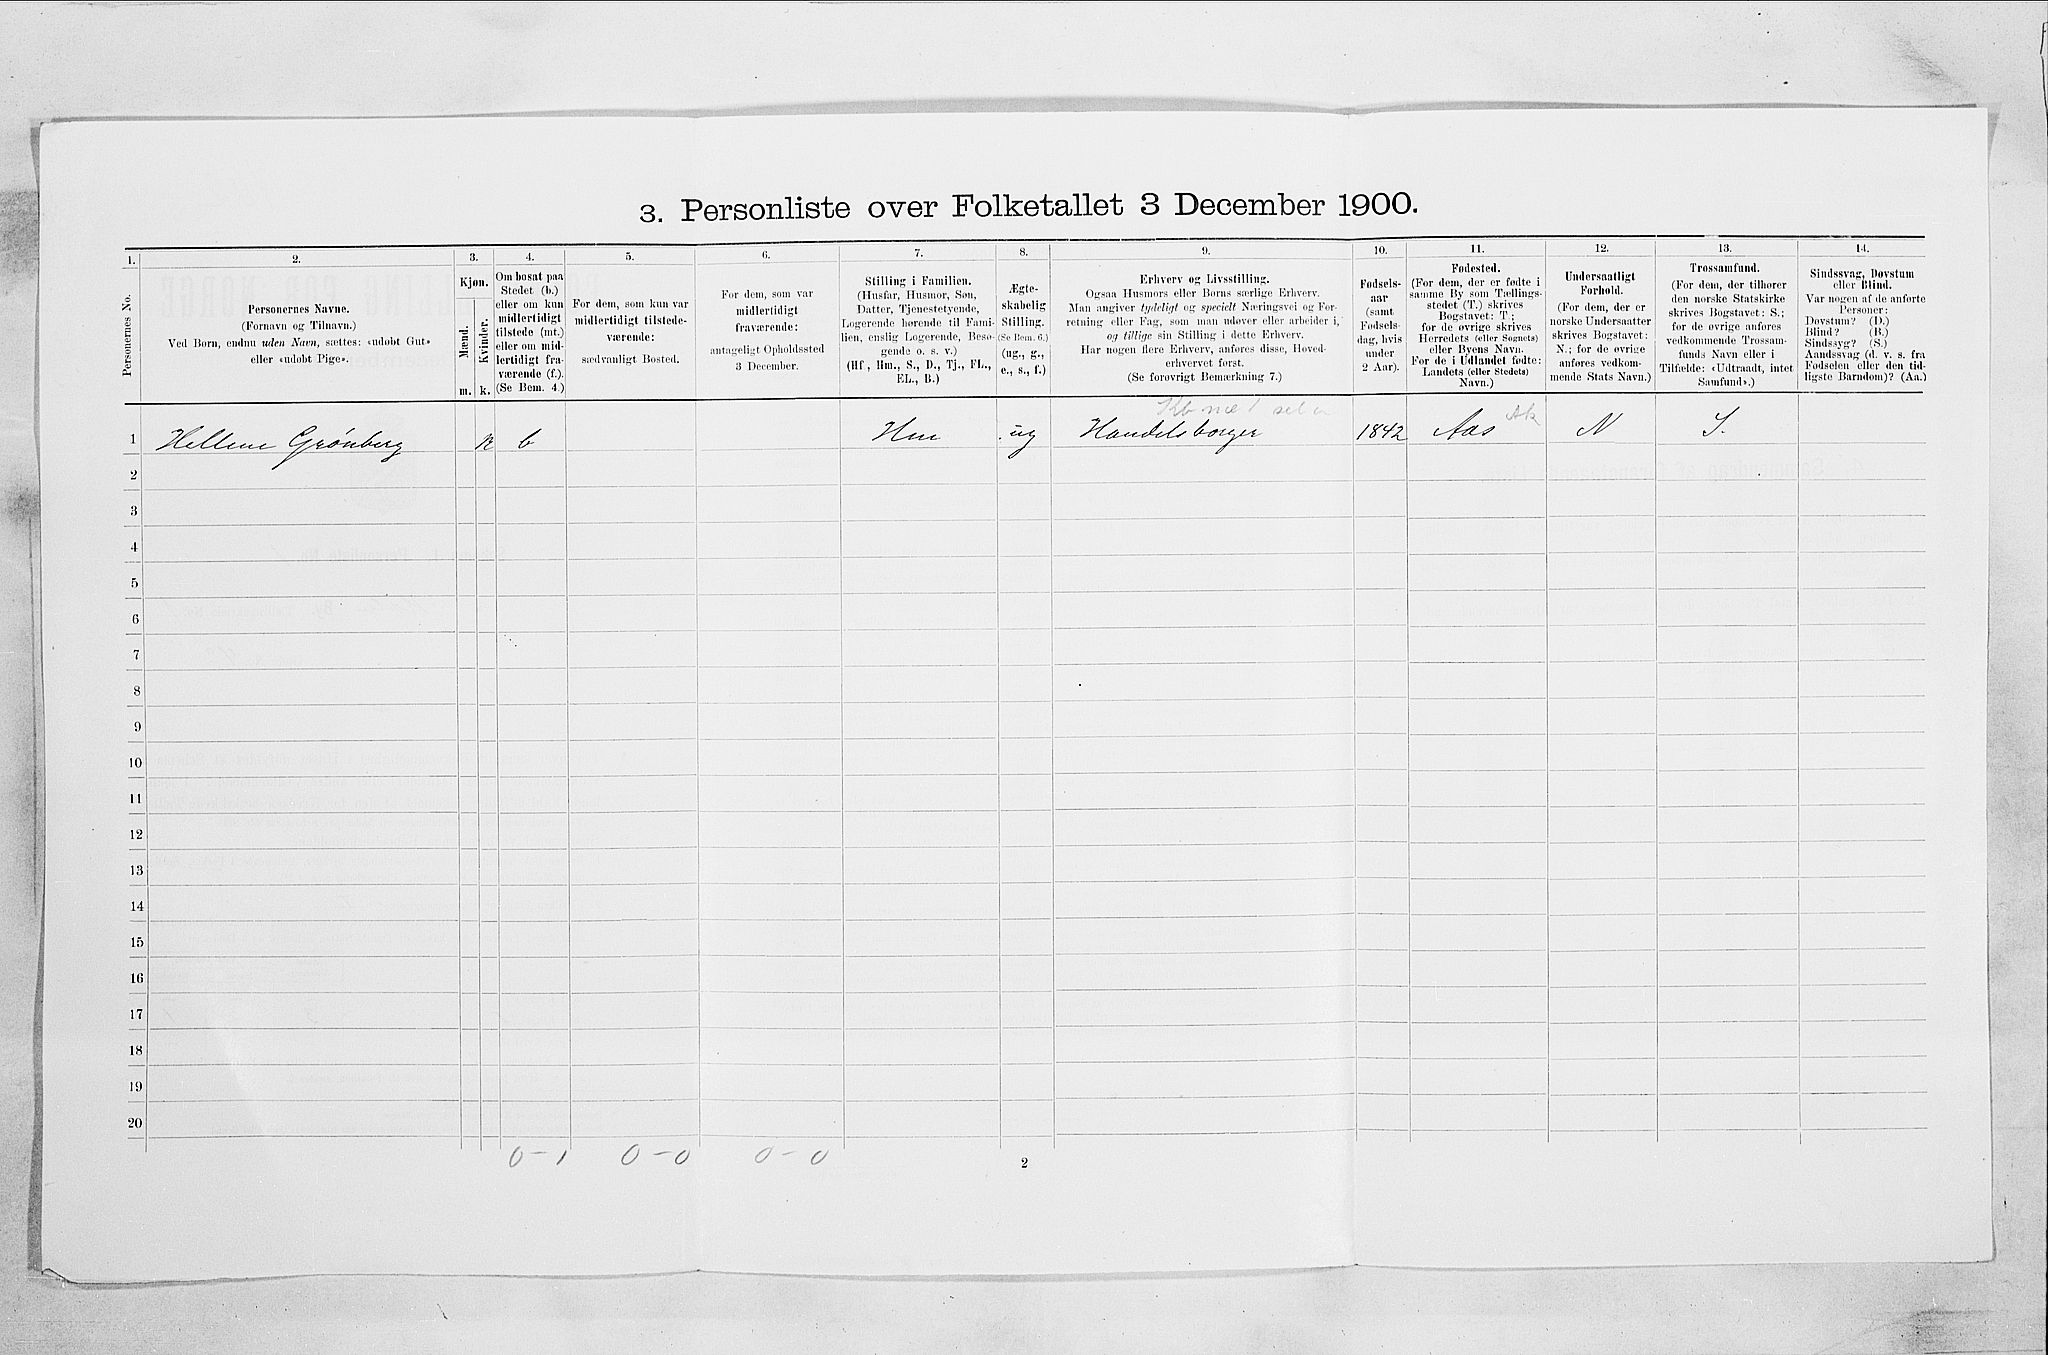 3. Personliste over Folketallet 3 December 1900.
1.
Personernes No.
2.
Personernes Navne.
(Fornavn og Tilnavn.)
Ved Børn, endnu uden Navn, sættes: «udøbt Gut»
eller «udøbt Pige».
3.
Kjøn.
Mænd.
Kvinder.
m. k.
4.
Om bosat paa
Stedet (b.)
eller om kun
midlertidigt
tilstede (mt.)
eller om mid-
lertidigt fra-
værende (f.).
(Se Bem. 4.)
5.
For dem, som kun var
midlertidigt tilstede-
værende:
sædvanligt Bosted.
6.
For dem, som var
midlertidigt
fraværende:
antageligt Opholdssted
3 December.
7.
Stilling i Familien.
(Husfar, Husmor, Søn,
Datter, Tjenestetyende,
Logerende hørende til Fami-
lien, enslig Logerende, Besø-
gende o. s. v.)
(Hf., Hm., S., D., Tj., FL.,
EL., B.)
8.
Ægte-
skabelig
Stilling.
(Se Bem. 6.)
(ug., g.,
e., s., f.)
9.
Erhverv og Livsstilling.
Ogsaa Husmors eller Børns særlige Erhverv.
Man angiver tydeligt og specielt Næringsvei og For-
retning eller Fag, som man udøver eller arbeider i,
og tillige sin Stilling i dette Erhverv.
Har nogen flere Erhverv, anføres disse, Hoved-
erhvervet først.
(Se forøvrigt Bemærkning 7.)
10.
Fødsels-
aar
(samt
Fødsels-
dag, hvis
under
2 Aar).
11.
Fødested.
(For dem, der er fødte i
samme By som Tællings-
stedet (T.) skrives
Bogstavet: T.;
for de øvrige skrives
Herredets (eller Sognets)
eller Byens Navn.
For de i Udlandet fødte:
Landets (eller Stedets)
Navn.)
12.
Undersaatligt
Forhold.
(For dem, der er
norske Undersaatter
skrives Bogstavet:
N.; for de øvrige
anføres vedkom-
mende Stats Navn.)
13.
Trossamfund.
(For dem, der tilhører
den norske Statskirke
skrives Bogstavet: S.;
for de øvrige anføres
vedkommende Trossam-
funds Navn eller i
Tilfælde: «Udtraadt, intet
Samfund».)
14.
Sindssvag, Døvstum
eller Blind.
Var nogen af de anførte
Personer:
Døvstum? (D.)
Blind? (B.)
Sindssyg? (S.)
Aandssvag (d. v. s. fra
Fødselen eller den tid-
ligste Barndom)? (Aa.)
1 Hellene Grønberg k b Hm ug Handelsborger 1842 Aas Ak N S.
2
3
4
5
6
7
8
9
10
11
12
13
14
15
16
17
18
19
20
0-1 0-0 0-0
2